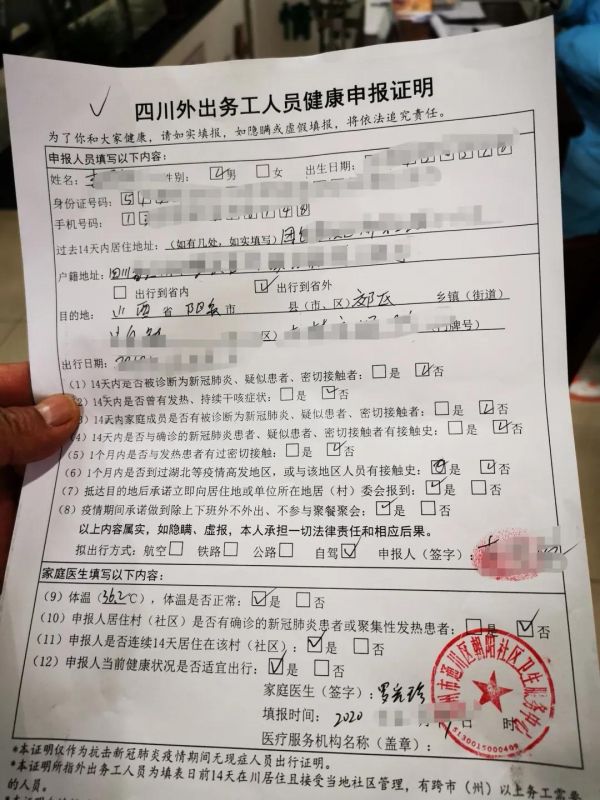 四川外出务工人员健康申报证明
为了你和大家健康，请如实填报，如隐瞒或虚假填报，将依法追究责任。
申报人员填写以下内容：
姓名： 性别： ☑男 □女 出生日期：
身份证号码：
手机号码：
过去14天内居住地址：（如有几处，如实填写）
户籍地址：四川
□出行到省内 ☑出行到省外
目的地： 山西省 阳泉市 县（市、区）郊区 乡镇（街道）
区） 门牌号）
出行日期：
（1）14天内是否被诊断为新冠肺炎、疑似患者、密切接触者：□是 ☑否
（2）14天内是否曾有发热、持续干咳症状：□是 ☑否
（3）14天内家庭成员是否有被诊断为新冠肺炎、疑似患者、密切接触者：□是 ☑否
（4）14天内是否与确诊的新冠肺炎患者、疑似患者、密切接触者有接触史：□是 ☑否
（5）1个月内是否与发热患者有过密切接触：□是 ☑否
（6）1个月内是否到过湖北等疫情高发地区，或与该地区人员有接触史：是 ☑否
（7）抵达目的地后承诺立即向居住地或单位所在地居（村）委会报到：☑是 □否
（8）疫情期间承诺做到除上下班外不外出、不参与聚餐聚会：☑是 □否
以上内容属实，如隐瞒、虚报，本人承担一切法律责任和相应后果。
拟出行方式：航空□ 铁路□ 公路□ 自驾☑ 申报人（签字）：
家庭医生填写以下内容：
（9）体温（36.2℃），体温是否正常：☑是 □否
（10）申报人居住村（社区）是否有确诊的新冠肺炎患者或聚集性发热患者：□是 ☑否
（11）申报人是否连续14天居住在该村（社区）：☑是 □否
（12）申报人当前健康状况是否适宜出行：☑是 □否
家庭医生（签字）：罗
填报时间： 2020 月 日 时
医疗服务机构名称（盖章）：
州市通川区朝阳社区卫生服务中心
5130015000409
*本证明仅作为抗击新冠肺炎疫情期间无现症人员出行证明。
*本证明所指外出务工人员为填表日前14天在川居住且接受当地社区管理，有跨市（州）以上务工需要
的人员。